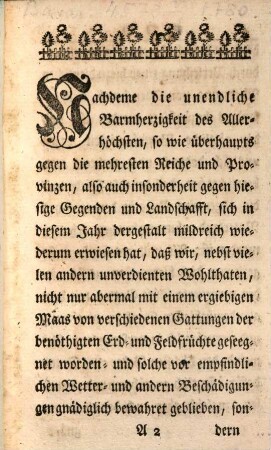 Nachdeme die unendliche
Barmherzigkeit des Aller-
höchsten, so wie überhaupts
gegen die mehresten Reiche und Pro-
vinzen, also auch insonderheit gegen hie-
sige Gegenden und Landschafft, sich in
diesem Jahr dergestalt mildreich wie-
derum erwiesen hat, daß wir, nebst vie-
len andern unverdienten Wohlthaten,
nicht nur abermal mit einem ergiebigen
Maas von verschiedenen Gattungen der
benöthigten Erd- und Feldsrüchte geseeg-
net worden- und solche vor empfindli-
chen Wetter- und andern Beschädigun-
gen gnädiglich bewahret geblieben, son-
A 2 dern